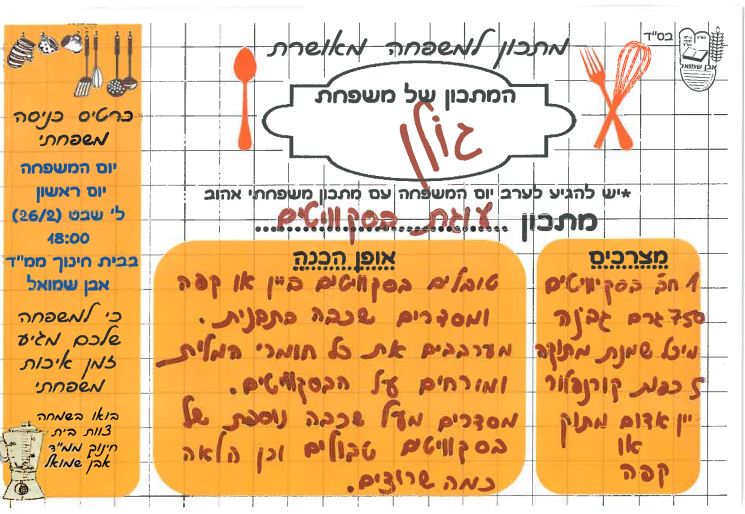 בס"ד
אבן שמואל
מתכון למשפחה מאושרת
המתכון של משפחת
גולן
*יש להגיע לערב יום המשפחה עם מתכון משפחתי אהוב
מתכון עוגת בסקוויטים
מצרכים
1 חב' בסקוויטים
750 גרם גבינה
מיכל שמנת מתוקה
5 כפות קורנפלור
יין אדום מתוק
או
קפה
אופן הכנה
טובלים בסקוויטים ביין או קפה
ומסדרים שכבה בתבנית.
מערבבים את כל חומרי המלית
ומורחים על הבסקוויטים.
מסדרים מעל שכבה נוספת של
בסקוויטים טבולים וכן הלאה
כמה שרוצים.
כרטיס כניסה
משפחתי
יום המשפחה
יום ראשון
ל' שבט (26/2)
18:00
בבית חינוך ממ"ד
אבן שמואל
כי למשפחה
שלכם מגיע
זמן איכות
משפחתי
בואו בשמחה
צוות בית
חינוך ממ"ד
אבן שמואל